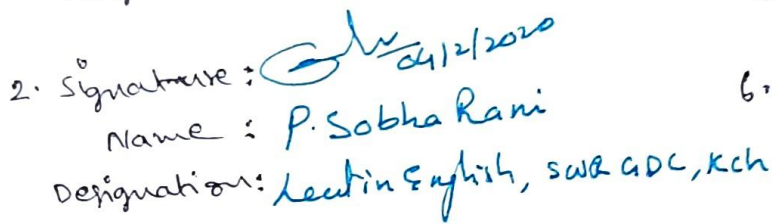 2. Signature: 04/2/2020
6.
Name : P. Sobha Rani
Designation: Lect in English, SWR GDC, Kch